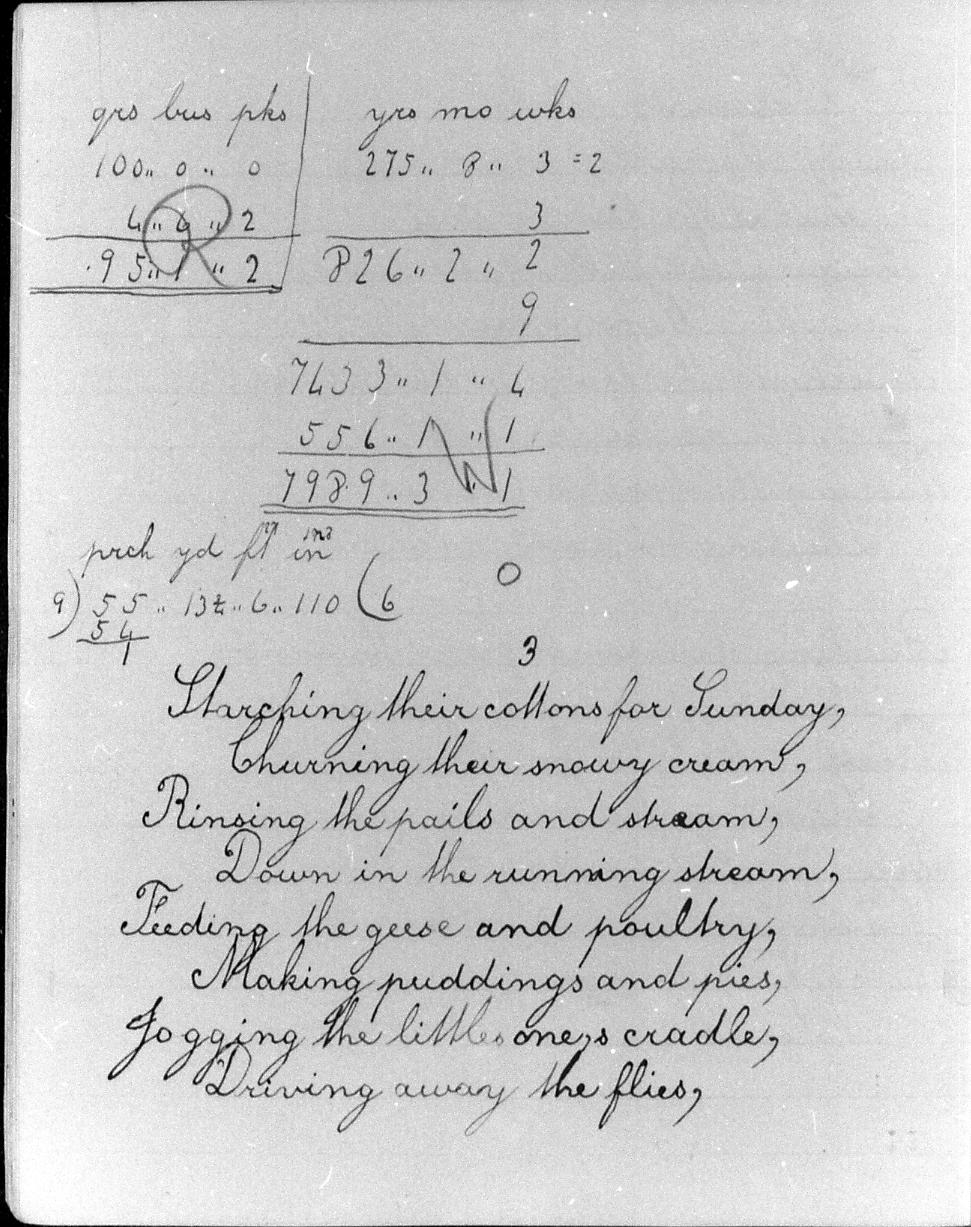 qrs bus pks
100 " 0 " 0
4 " 6 " 2
95 " 1 " 2
R
yrs mo wks
275 " 8 " 3 = 2
3
826 " 2 " 2
9
7433 " 1 " 4
556 " 1 " 1
7989 " 3 " 1
W
prch yd ft in
9) 55 " 13½ " 6 " 110 (6
54
1
0
3
Starching their cottons for Sunday,
Churning their snowy cream,
Rinsing the pails and stream,
Down in the running stream,
Feeding the geese and poultry,
Making puddings and pies,
Jogging the littles one,s cradle,
Driving away the flies,